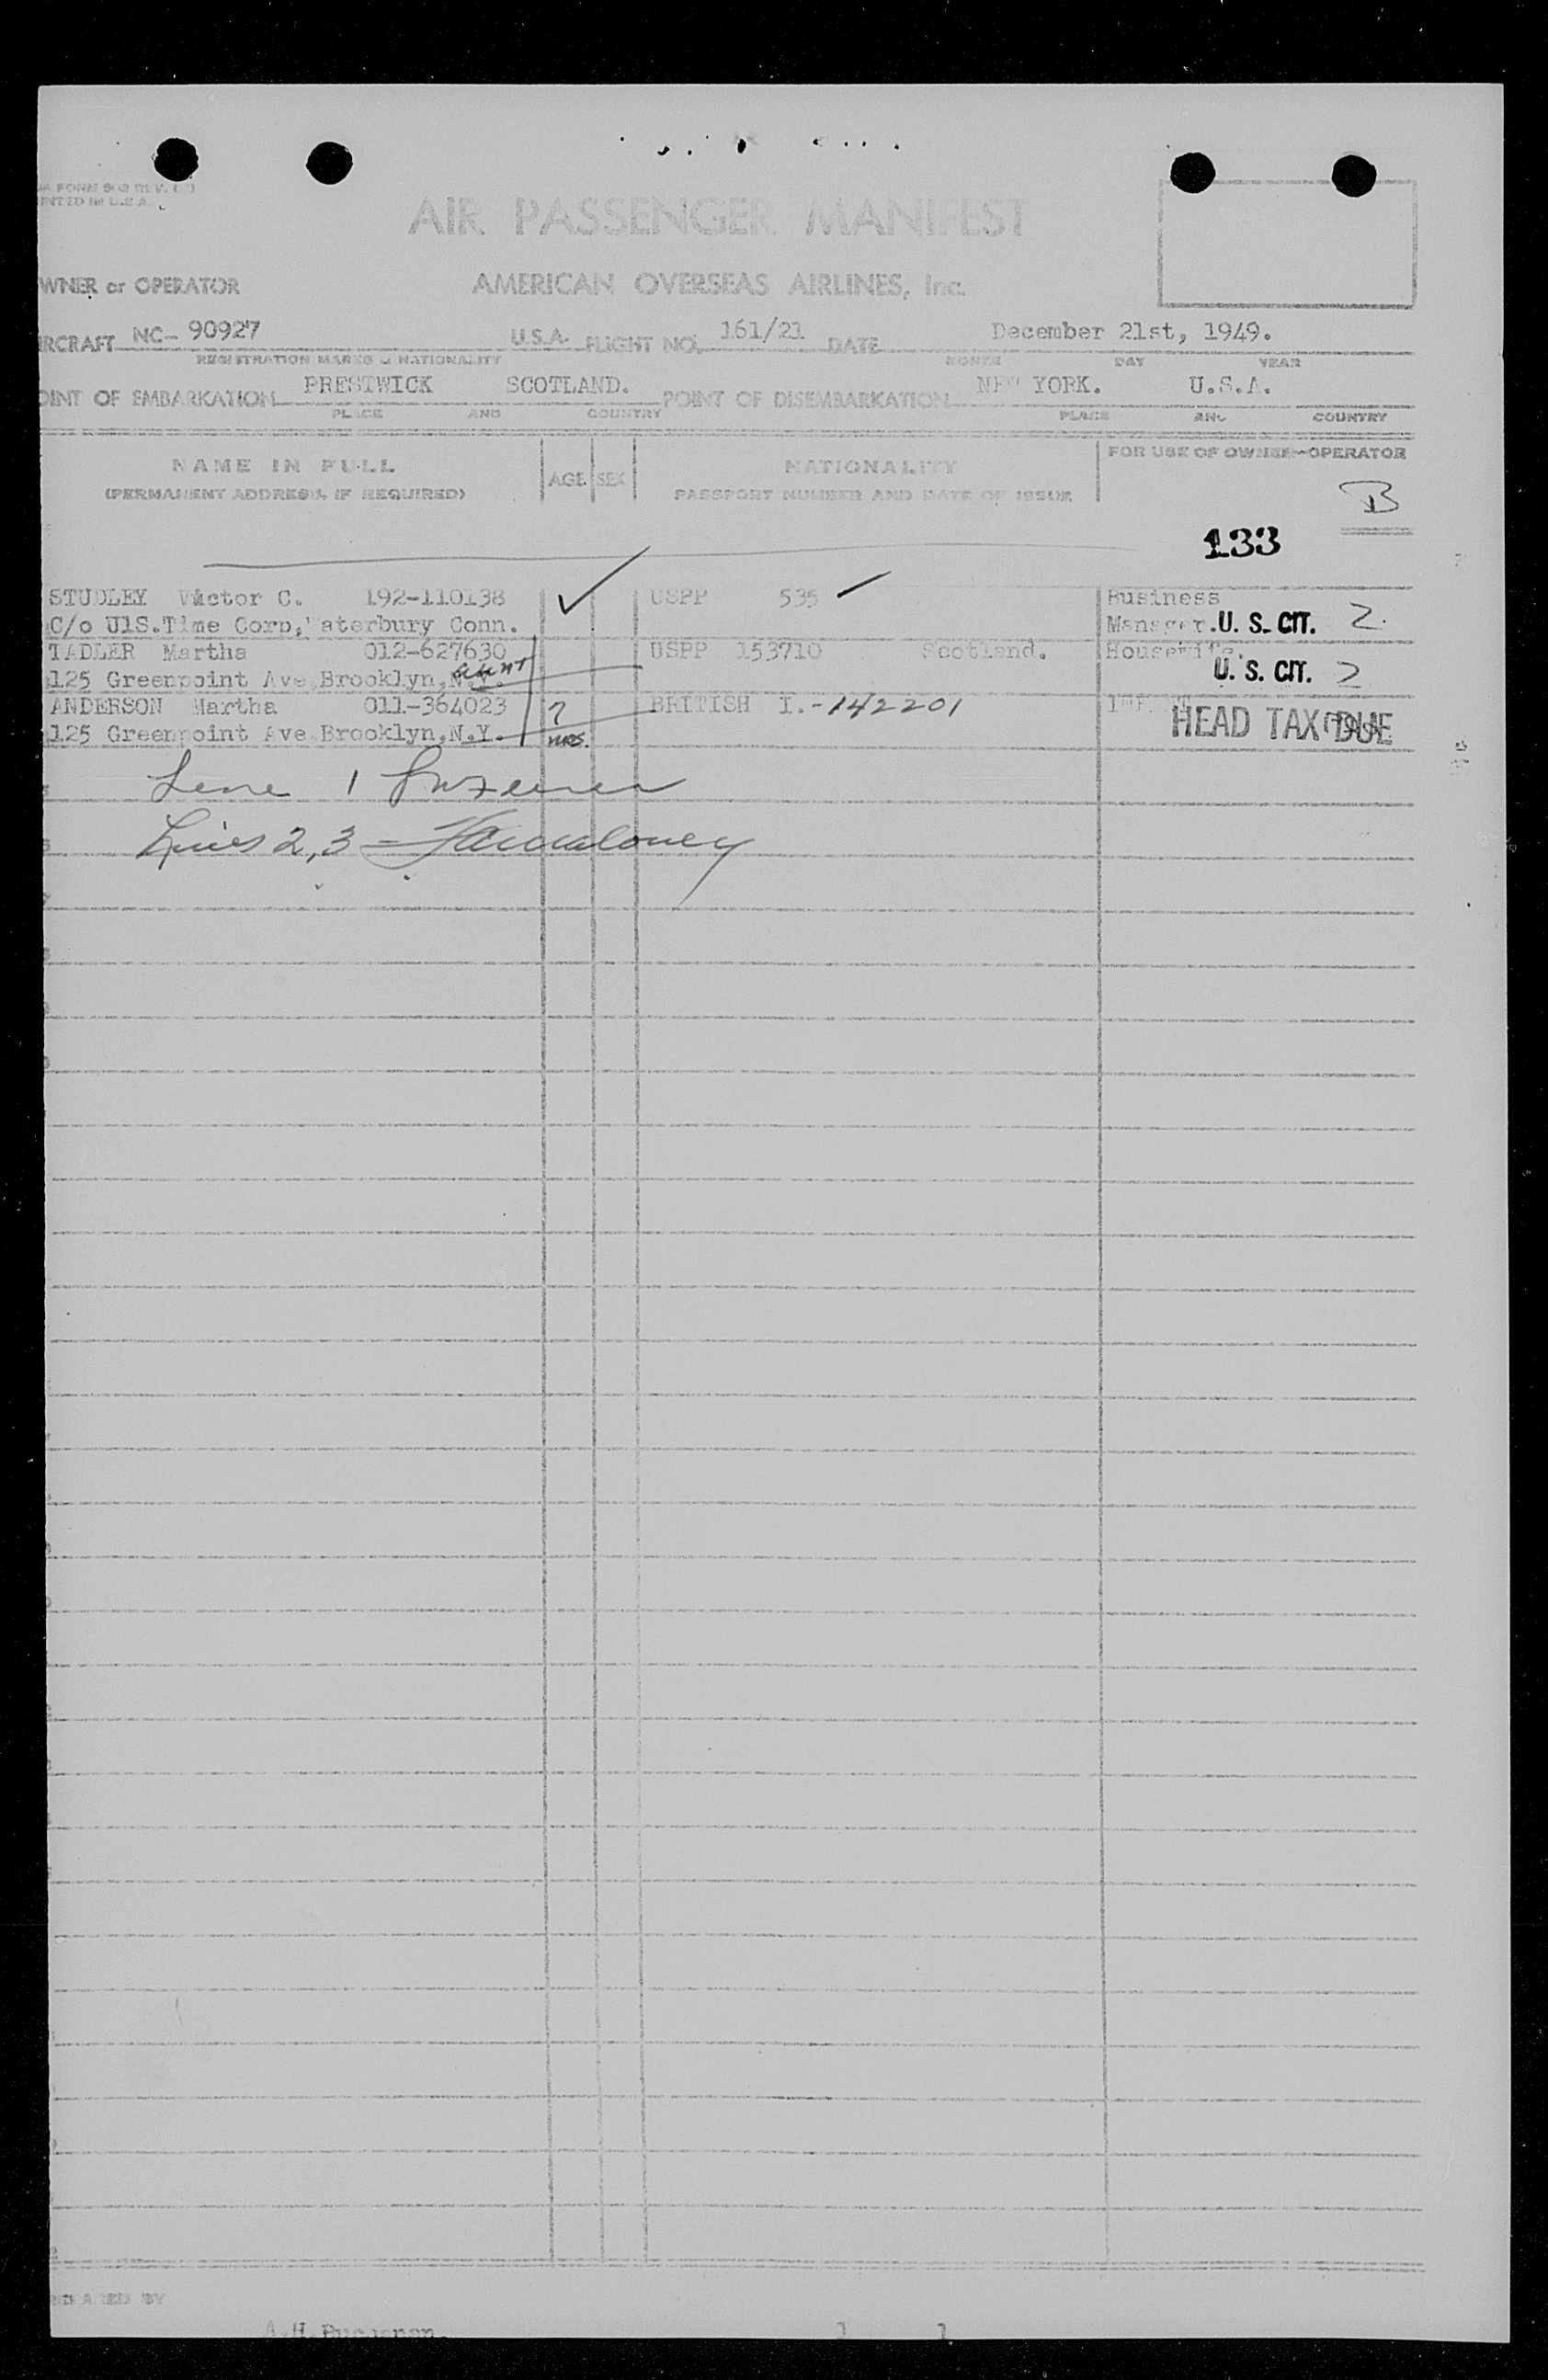 FORM
AIR PASSENGER MANIFEST
WNER or OPERATOR AMERICAN OVERSEAS AIRLINES, Inc.
RCRAFT NC- 90927 U.S.A. FLIGHT NO. 161/21 DATE December 21st, 1949.
REGISTRATION MARKS & NATIONALITY MONTH DAY YEAR
OINT OF EMBARKATION PRESTWICK SCOTLAND. POINT OF DISEMBARKATION NEW YORK. U.S.A.
PLACE AND COUNTRY PLACE AND COUNTRY
NAME IN FULL AGE SEX NATIONALITY FOR USE OF OWNER-OPERATOR
(PERMANENT ADDRESS, IF REQUIRED) PASSPORT NUMBER AND DATE OF ISSUE
B
133
STUDLEY Victor C. 192-110138 USPP 535 Business
C/o U1S.Time Corp, aterbury Conn. Manager. U. S. CIT. 2.
TADLER Martha 012-627630 USPP 153710 Scotland. Housewife.
125 Greenpoint Ave,Brooklyn,N.Y. AUNT U. S. CIT. 2
ANDERSON Martha 011-364023 7 BRITISH I.-142201
125 Greenpoint Ave Brooklyn,N.Y. MOS. HEAD TAX DUE
Line 1
Lines 2,3 =
PREPARED BY
A.H.Buchanan. 1 1